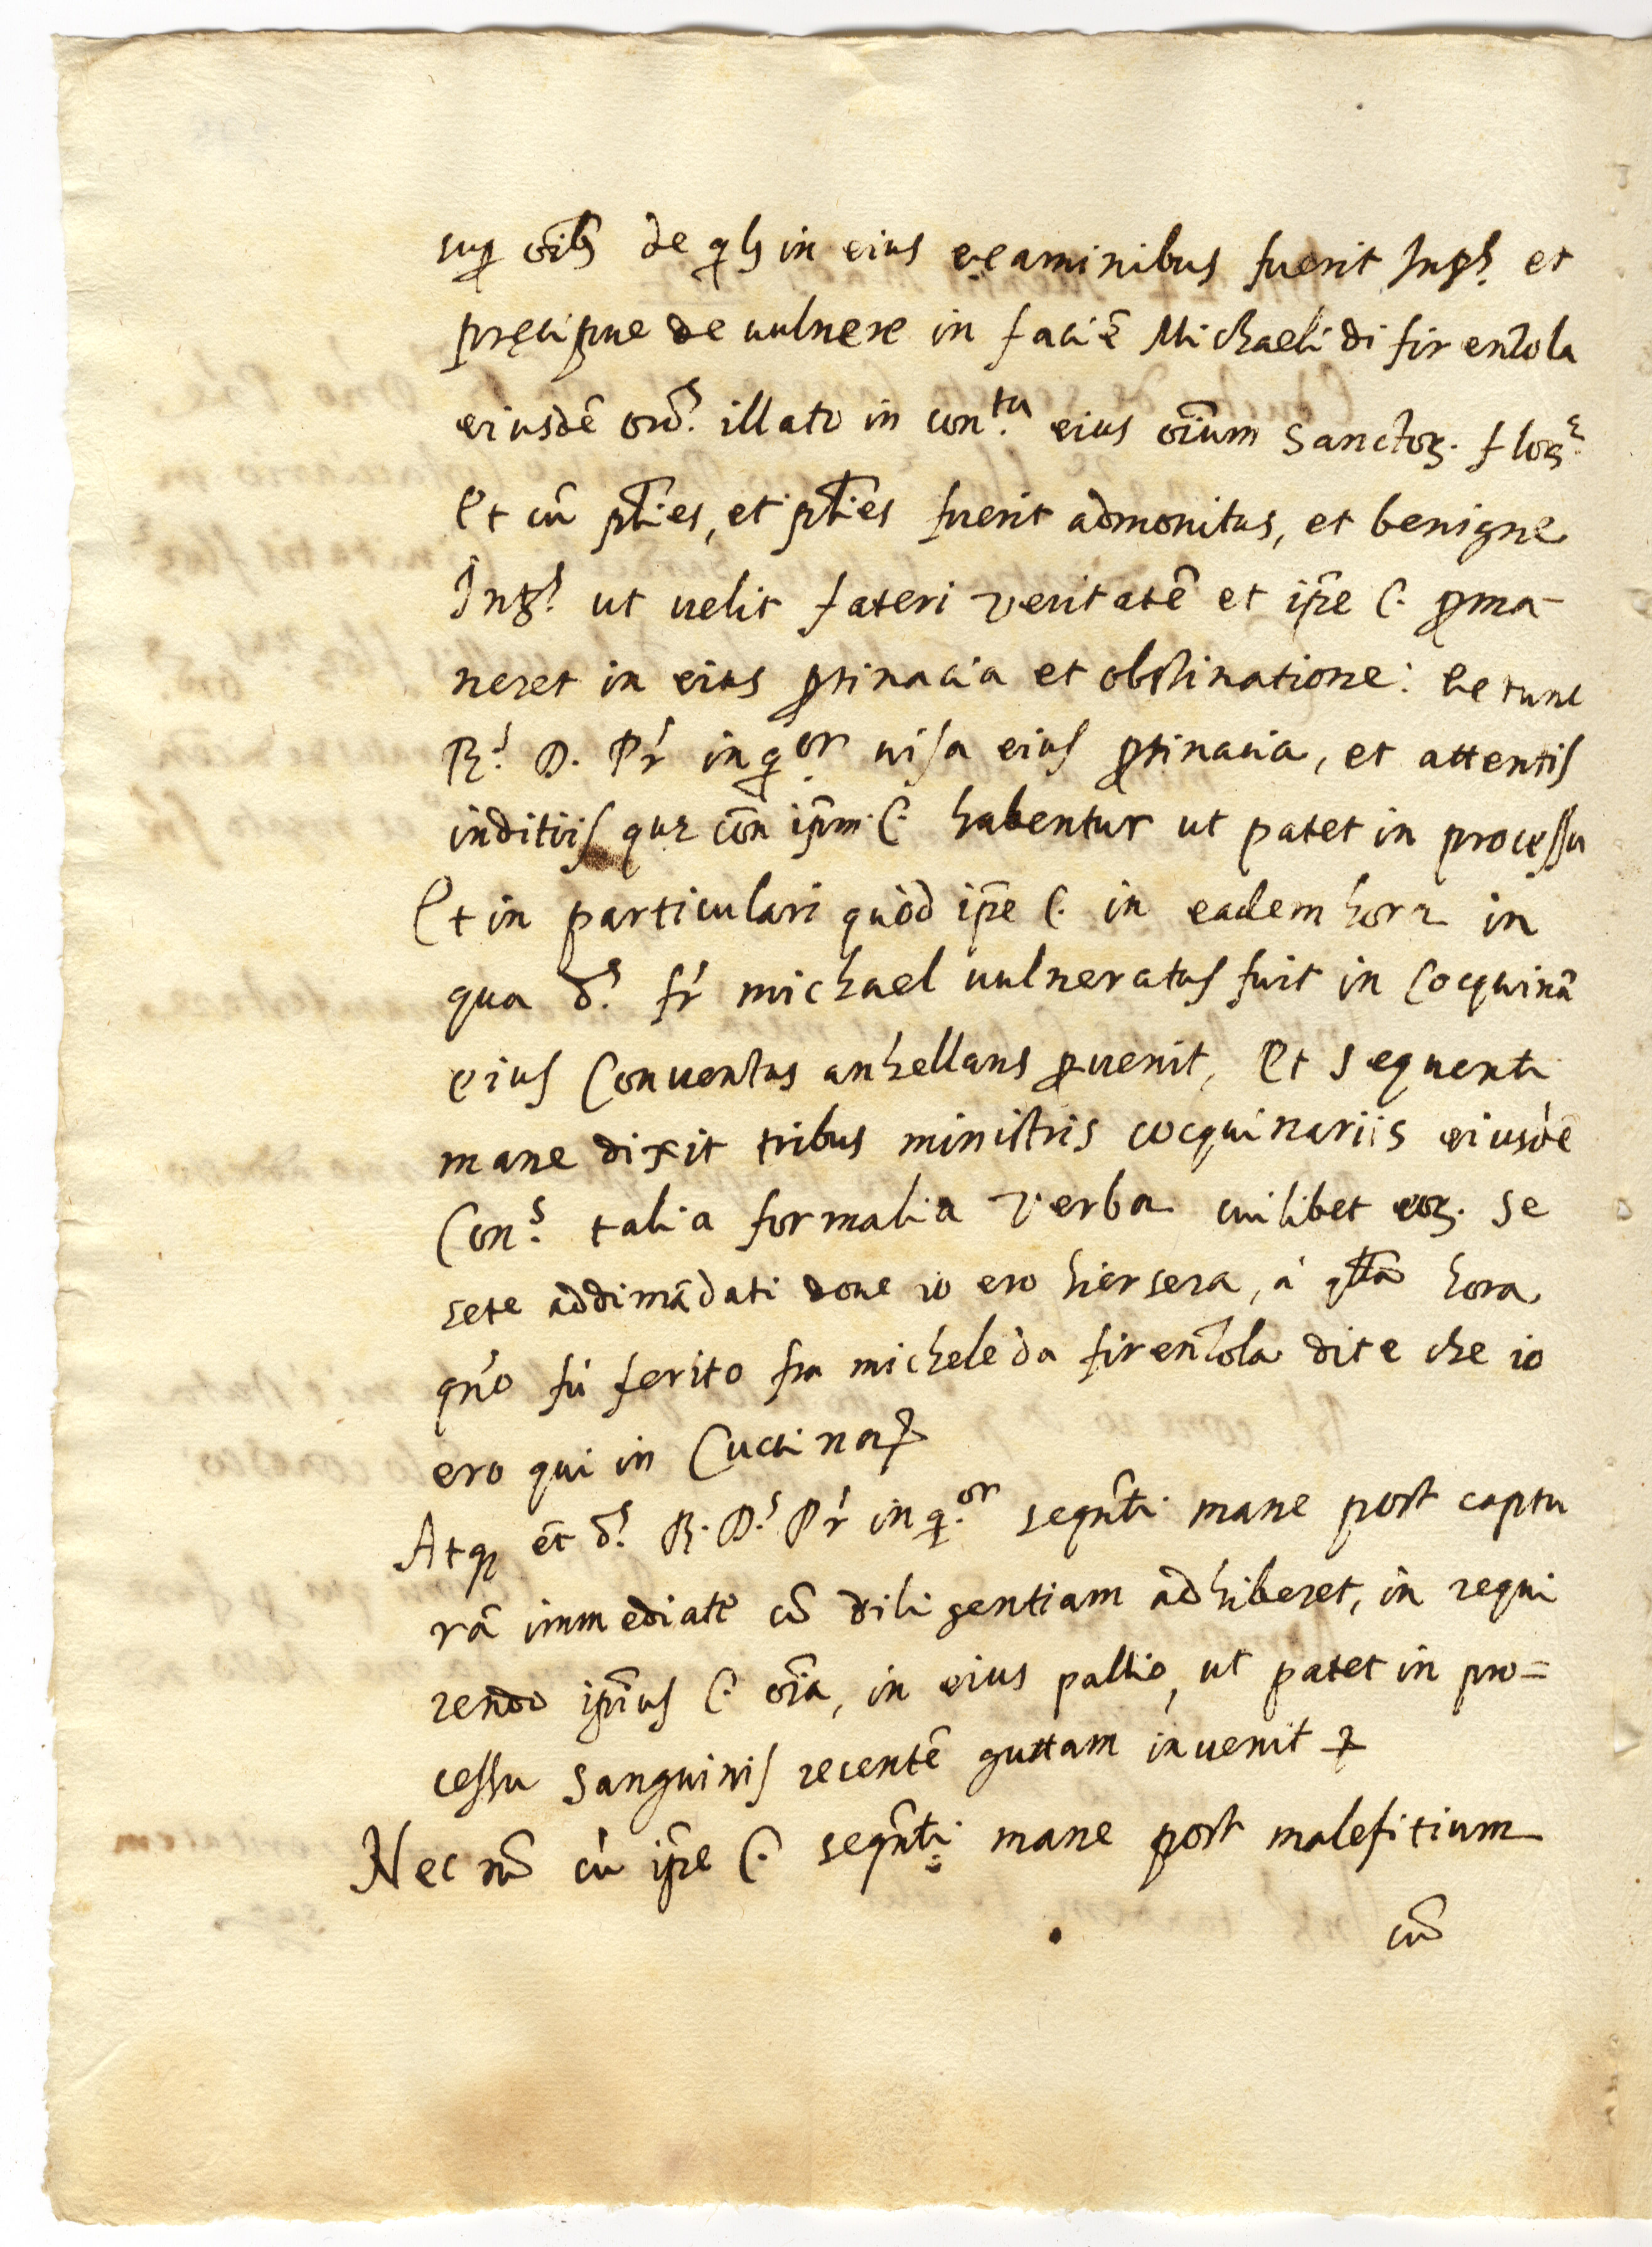 sup oib; de qb; in eius examinibus fuerit Int.s et
pręcipue de uulnere in faciē Michaeli di firenzola
eiusdē ord.s illato in con.tu eius oīum Sanctoꝝ. floꝝ.e
Et cū pl̄ies, et pl̄ies fuerit admonitus, et benigne
Int.s ut uelit fateri veritatē et ip̄e C. ꝑma
neret in eius ꝑtinacia et obstinatione: et tunc
R.s D. Pr̄ inq.or uisa eius ꝑtinacia, et attentis
inditiis que con̄ ip̄m C. habentur ut patet in processu
Et in particulari quòd ip̄e C. in eadem hora in
qua d.s fr̄ michael uulneratus fuit in Cocquinā
eius Conuentus anhellans ꝑuenit, Et sequenti
mane dixit tribus ministris cocquinariis eiusdē
Con.s talia formalia verba cuilibet eoꝝ. se
sete addimādati doue io ero hiersera, à q̄lla hora
qn̄o fù ferito fra michele da firenzola dite che io
ero qui in Cuccina
Atq; ēt d.s R. D.s Pr̄ inq.or seqn̄ti mane post captu
rā immediatè cū diligentiam adhiberet, in requi
rendo ip̄ius C. oīa, in eius pallio, ut patet in pro=
cessu sanguinis recentē guttam inuenit
Nec nō cù ip̄e C. seqn̄ti mane post malefitium
cū